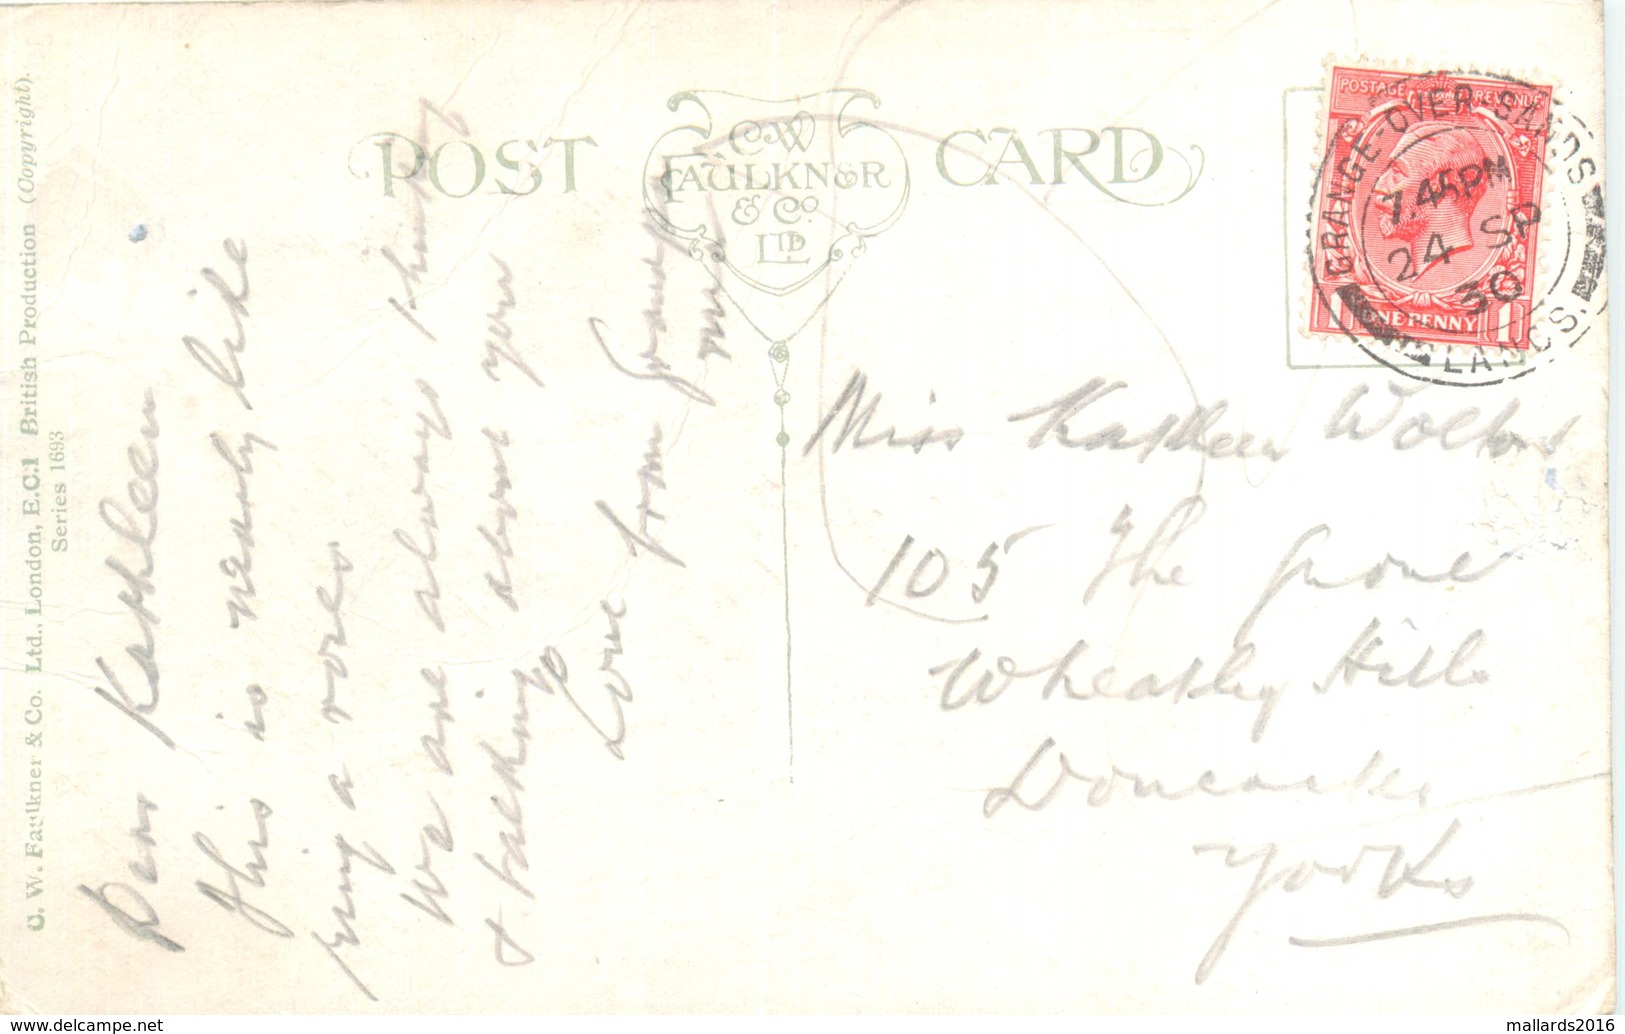 C. W. Faulkner & Co. Ltd., London, E.C.1 British Production (Copyright).
Series 1693
POST CARD
C.W
FAULKNER
& Co
LTD
POSTAGE REVENUE
ONE PENNY
GRANGE-OVER-SANDS
7.45PM
24 SP
30
LANCS.
Dear Kathleen
This is nearly like
a rose
We are always think
& talking about you
Love from Grand
ma
Miss Kathleen
105 The Grove
Wheatley Hills
Doncaster
Yorks
mallards2016